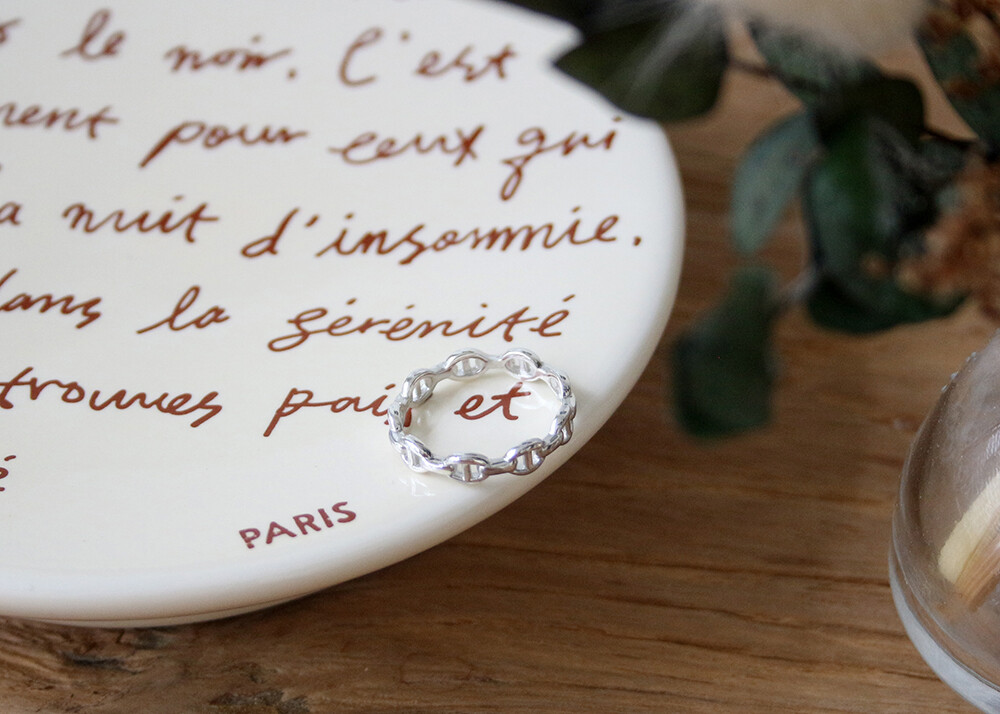 le noir. C'est
ment pour ceux qui
la nuit d'insomnie.
dans la sérénité
trouves paix et
é
PARIS